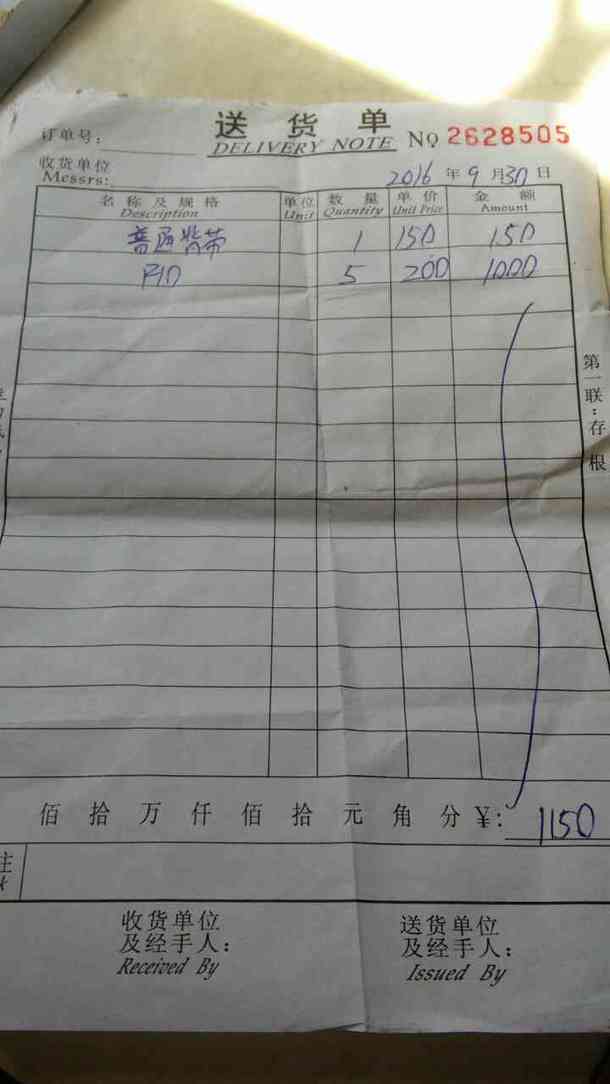 送 货 单
订单号: DELIVERY NOTE № 2628505
收货单位
Messrs: 2016 年 9 月 30 日
名 称 及 规 格 单位 数 量 单 价 金 额
Description Unit Quantity Unit Price Amount
普通背带 1 150 150
5 200 1000
第一联:存根
佰 拾 万 仟 佰 拾 元 角 分 ¥: 1150
注
收货单位 送货单位
及经手人: 及经手人:
Received By Issued By